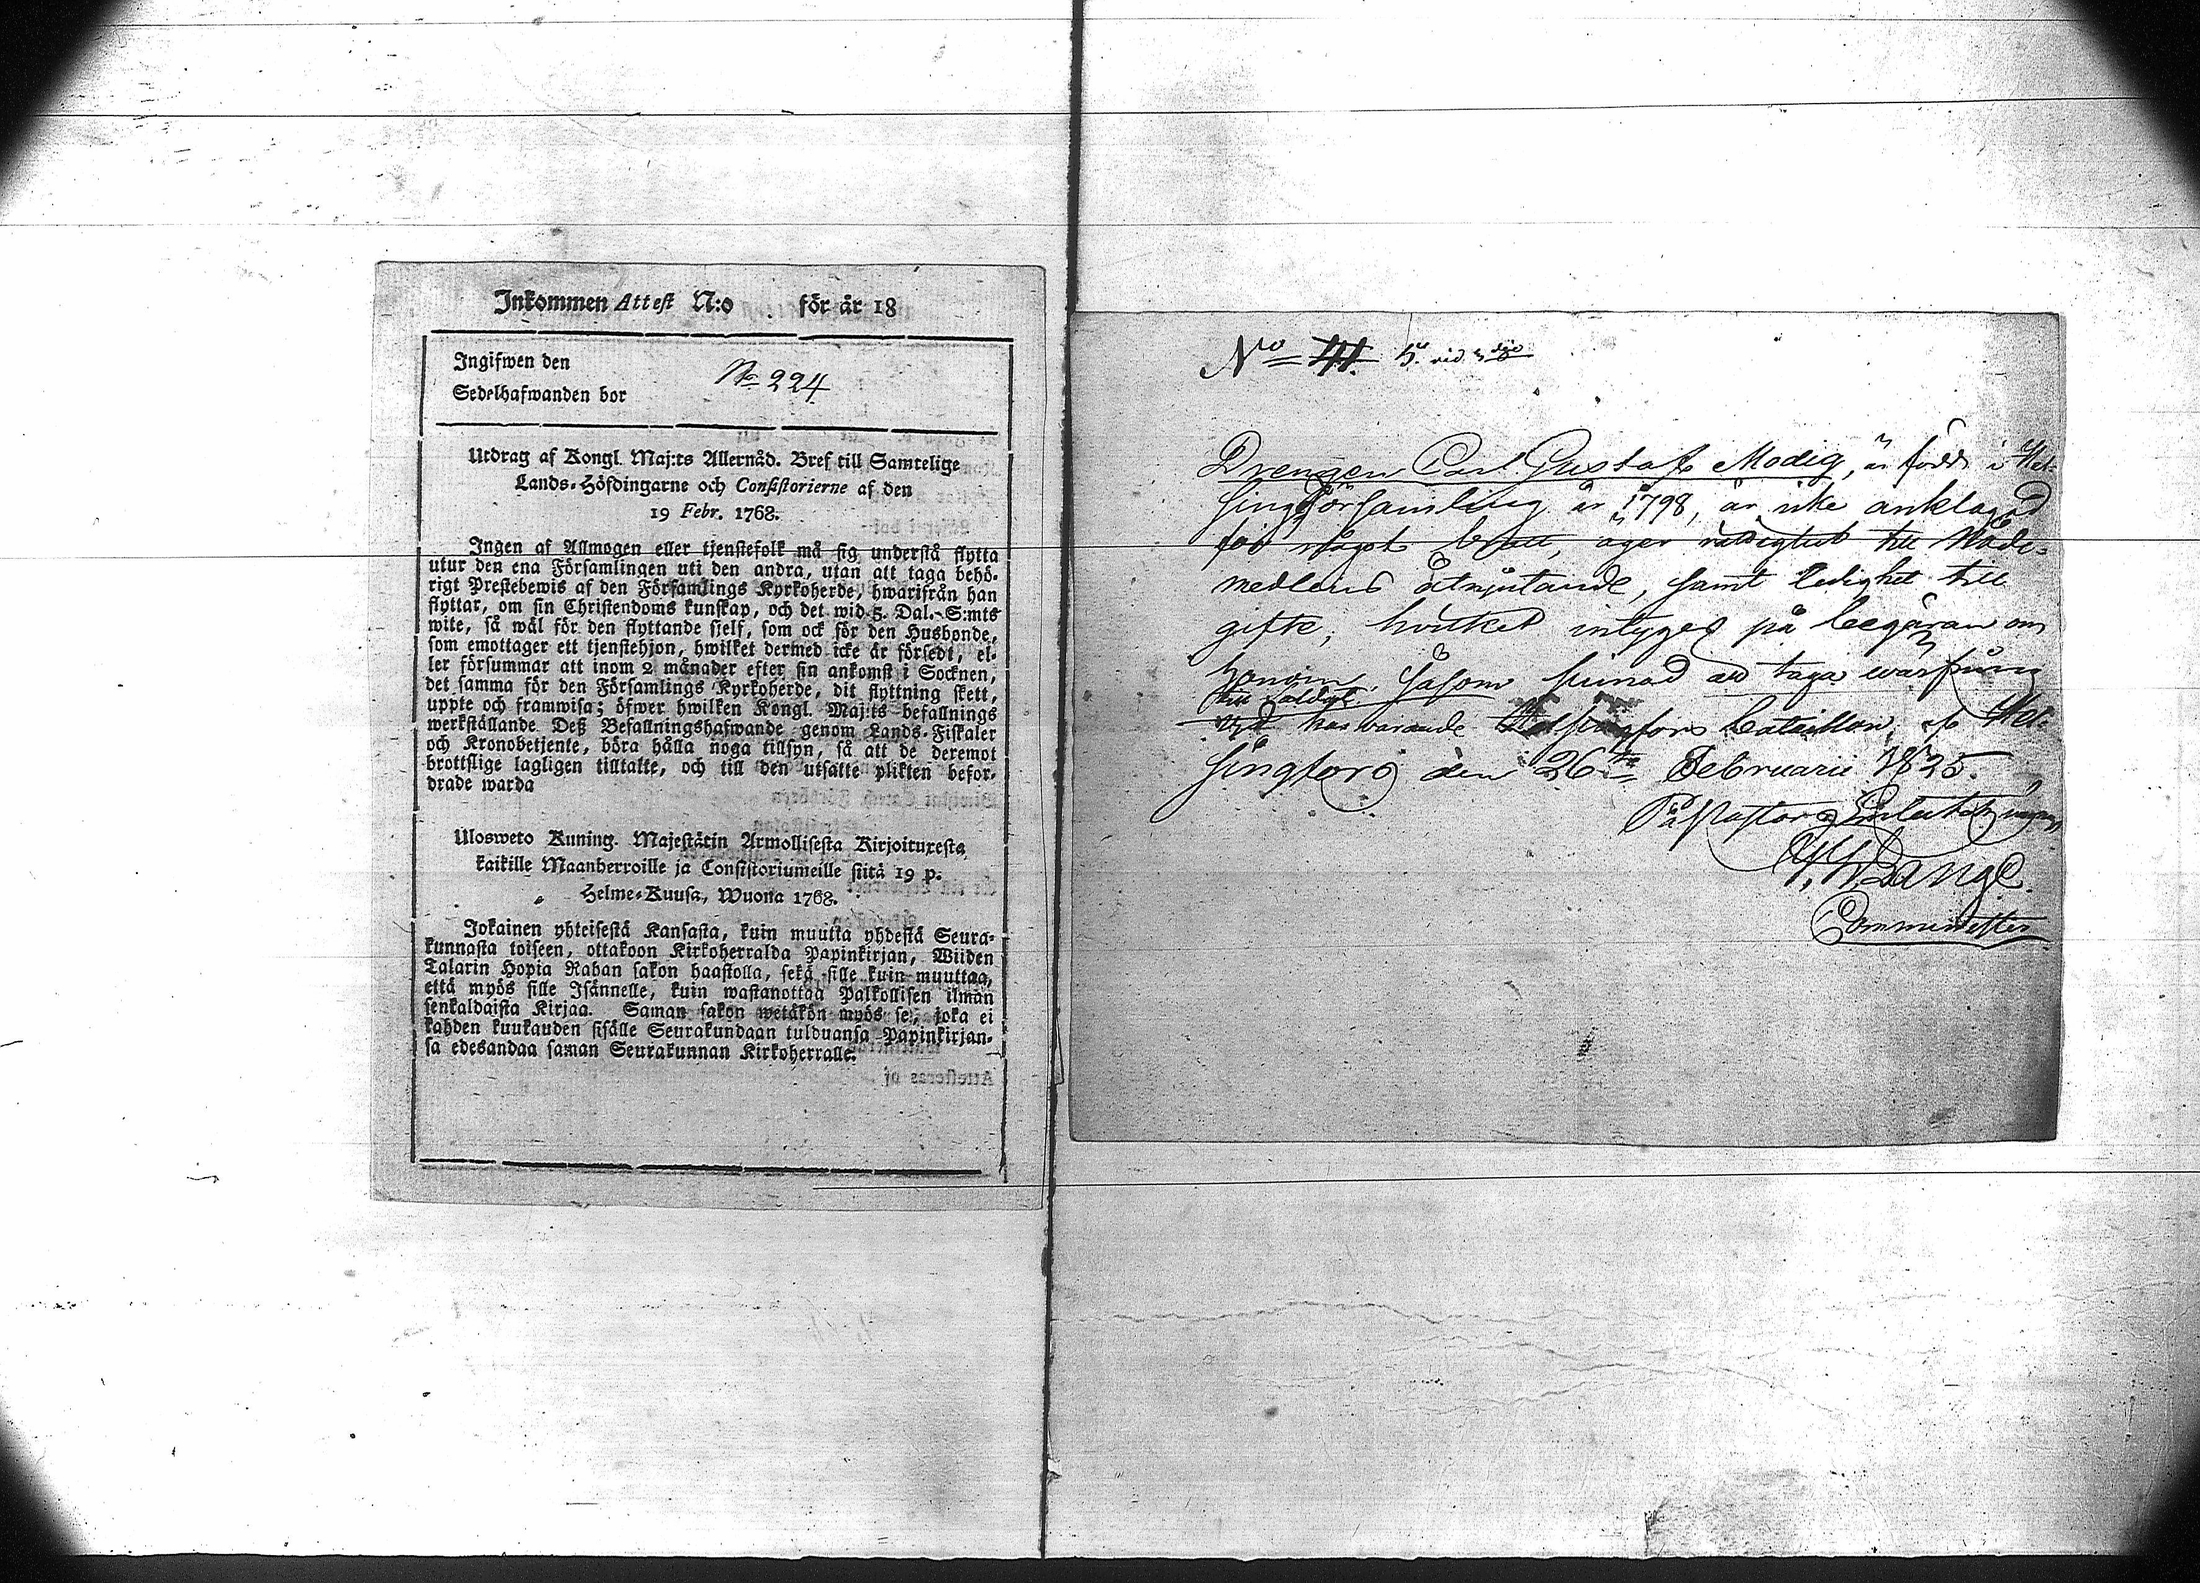 Inkommen Attest N:o för år 18
Ingifwen den
Sedelhafwanden bor
No 224
Utdrag af Kongl. Maj:ts Allernåd. Bref till Samtelige
Lands-Höfdingarne och Consistorierne af den
19 Febr. 1768.
Ingen af Allmogen eller tjenstefolk må sig understå flytta
utur den ena Församlingen uti den andra, utan att taga behö-
rigt Prestebewis af den Församlings Kyrkoherde, hwarifrån han
flyttar, om sin Christendoms kunskap, och det wid 5. Dal. S:mts
wite, så wäl för den flyttande sjelf, som ock för den Husbonde,
som emottager ett tjenstehjon, hwilket dermed icke är försedt, el-
ler försummar att inom 2 månader efter sin ankomst i Socknen,
det samma för den Församlings Kyrkoherde, dit flyttning skett,
uppte och framwisa; öfwer hwilken Kongl. Maj:ts befallnings
werkställande Deß Befallningshafwande genom Lands-Fiskaler
och Kronobetjente, böra hålla noga tillsyn, så att de deremot
brottslige lagligen tilltalte, och till den utsatte plikten befor-
drade warda
Ulosweto Kuning. Majestätin Armollisesta Kirjoituxesta
kaikille Maanherroille ja Consistoriumeille siitä 19 p.
Helme-Kuusa, Wuona 1768.
Jokainen yhteisestä Kansasta, kuin muutta yhdestä Seura-
kunnasta toiseen, ottakoon Kirkoherralda Papinkirjan, Wiiden
Talarin Hopia Rahan sakon haastolla, sekä sille kuin muuttaa,
että myös sille Isännelle, kuin wastanottaa Palkollisen ilman
senkaldaista Kirjaa. Saman sakon wetäkön myös se, joka ei
kahden kuukauden sisälle Seurakundaan tulduansa Papinkirjan-
sa edesandaa saman Seurakunnan Kirkoherralle.
No 41.
Drengen Carl Gustaf Modig, är född i Hel-
singeförsamling år 1798, är icke anklagad
för något brott, äger rättighet till Nåde-
medlens åtnjutande, samt ledighet till
gifte; hvilket intyges på begäran om
honom, såsom sinnad att taga wärfning
till Soldat
vid härvarande Helsingfors bataillon, af Hel-
singfors den 26te Februarii 1825.
På Pastors Embetets vägnar
Lange.
Comminister